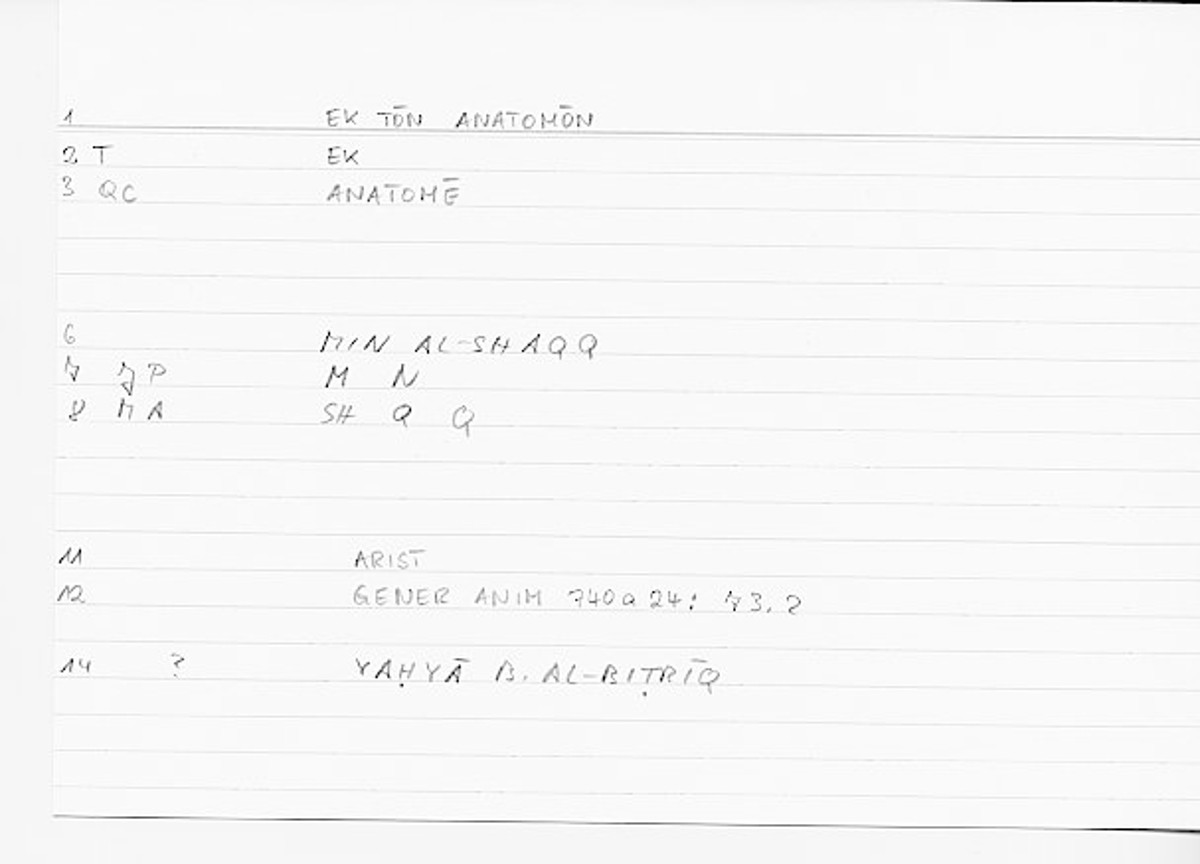 1 EK TŌN ANATOMŌN
2 T EK
3 QC ANATOMĒ
6 MIN AL-SHAQQ
7 JP M N
8 MA SH Q Q
11 ARIST
12 GENER ANIM 740a24: 73.2
14 ? YAḤYĀ B. AL-BIṬRĪQ